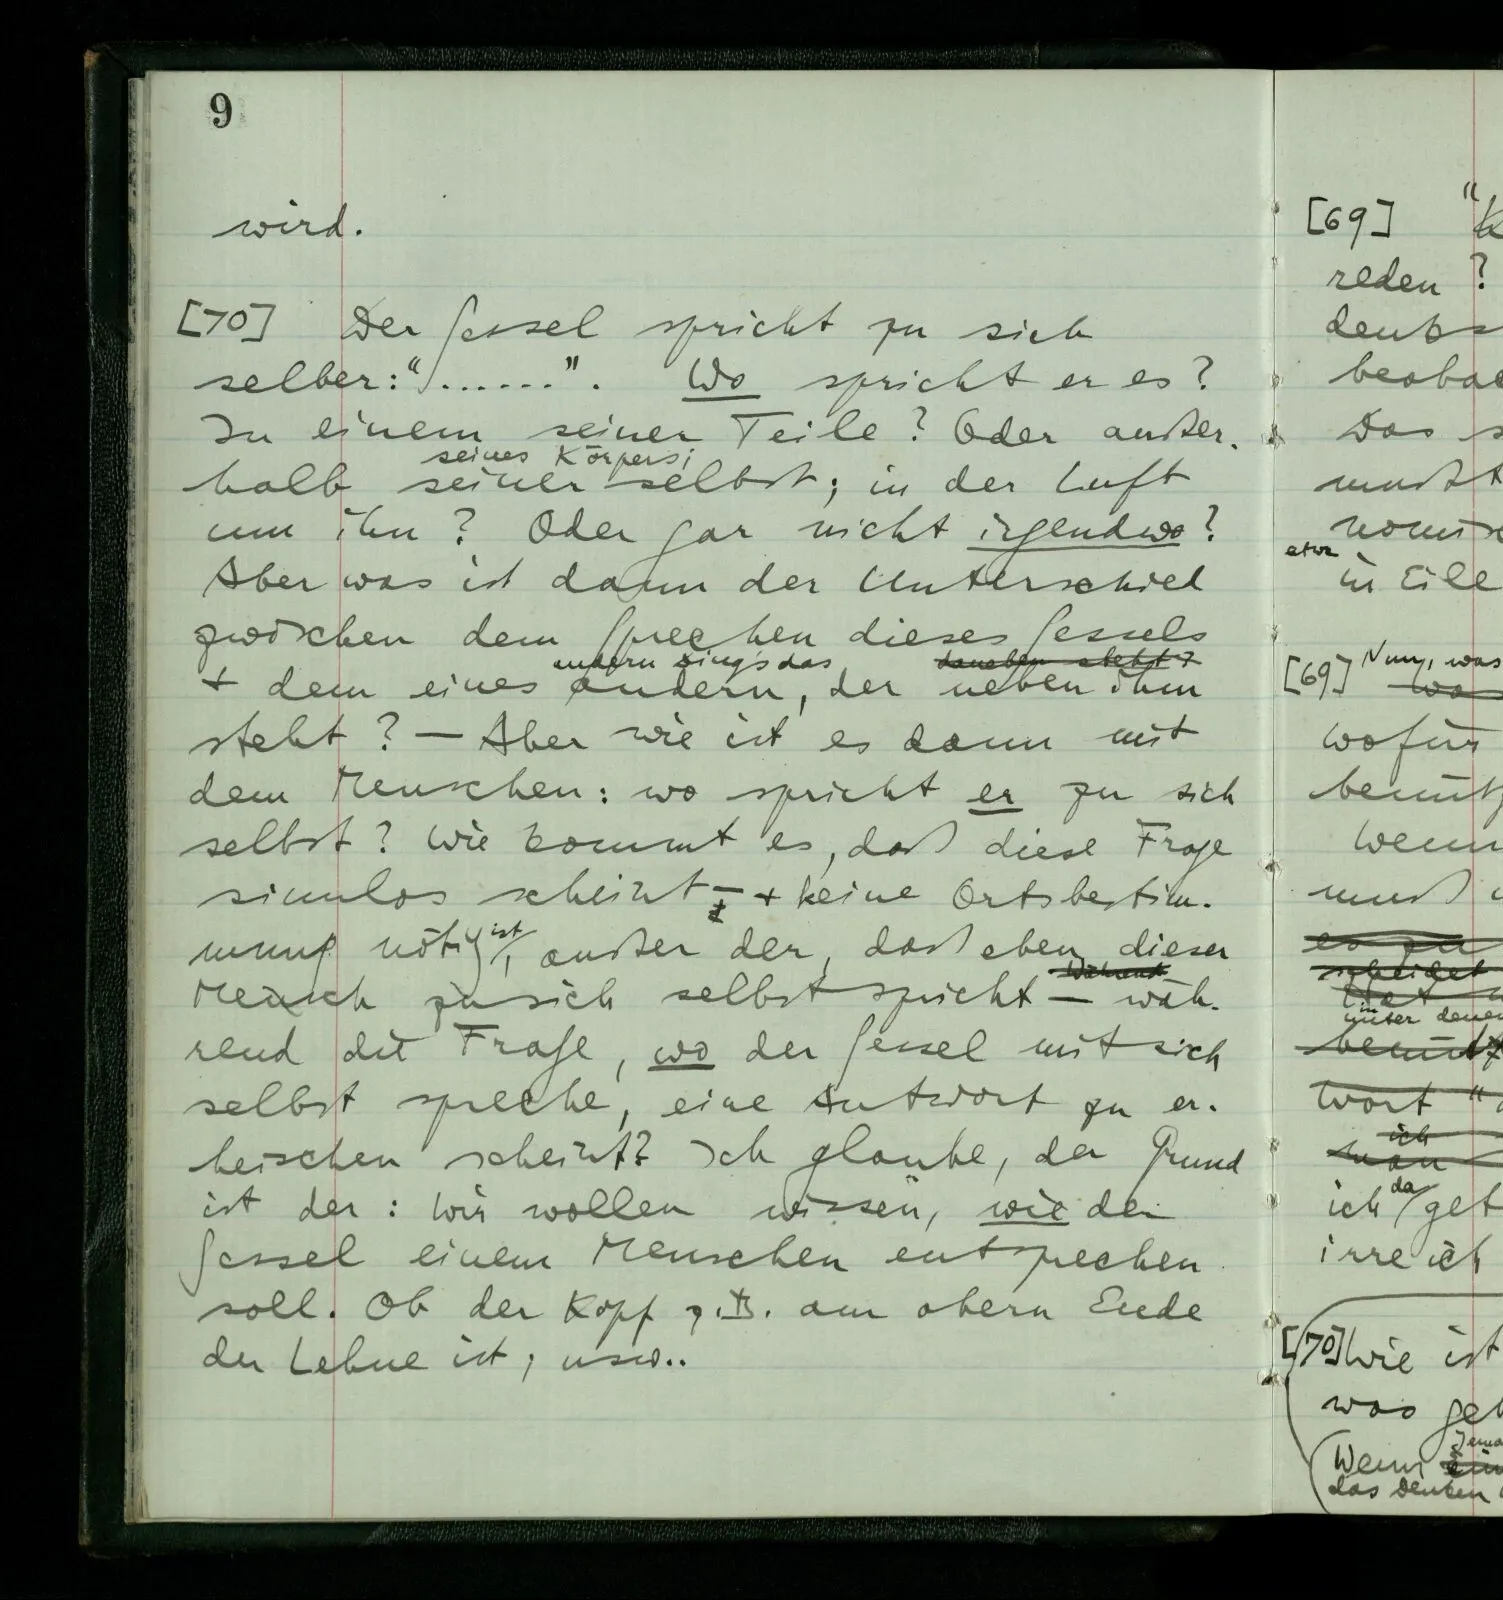 9
wird.
[70] Der Sessel spricht zu sich
selber: “......”. Wo spricht er es?
In einem seiner Teile? Oder außer-
seines Körpers;
halb seiner selbst; in der Luft
um ihn? Oder gar nicht irgendwo?
Aber was ist dann der Unterschied
zwischen dem Sprechen dieses Sessels
andern Dings das daneben steht?
+ dem eines andern, der neben ihm
steht? — Aber wie ist es dann mit
dem Menschen: wo spricht er zu sich
selbst? Wie kommt es, daß diese Frage
sinnlos scheint — + keine Ortsbestim-
ist
mung nötig, außer der, daß eben dieser
während
Mensch zu sich selbst spricht — wäh-
rend die Frage, wo der Sessel mit sich
selbst spreche, eine Antwort zu er-
heischen scheint? Ich glaube, der Grund
ist der: Wir wollen wissen, wie der
Sessel einem Menschen entsprechen
soll. Ob der Kopf z.B. am obern Ende
der Lehne ist; usw..
[69] “K
reden?
denks
beobac
Das s
mußt
etwa
in Eile
[69] Nun, was
wo
wofür
benütz
wenn
muß
es zu
scheidet
unter denen
benütz
Wort “
ich
man
da
ich get
irre ich
[70] Wie ist
was geh
Jema
Wenn
das Denken